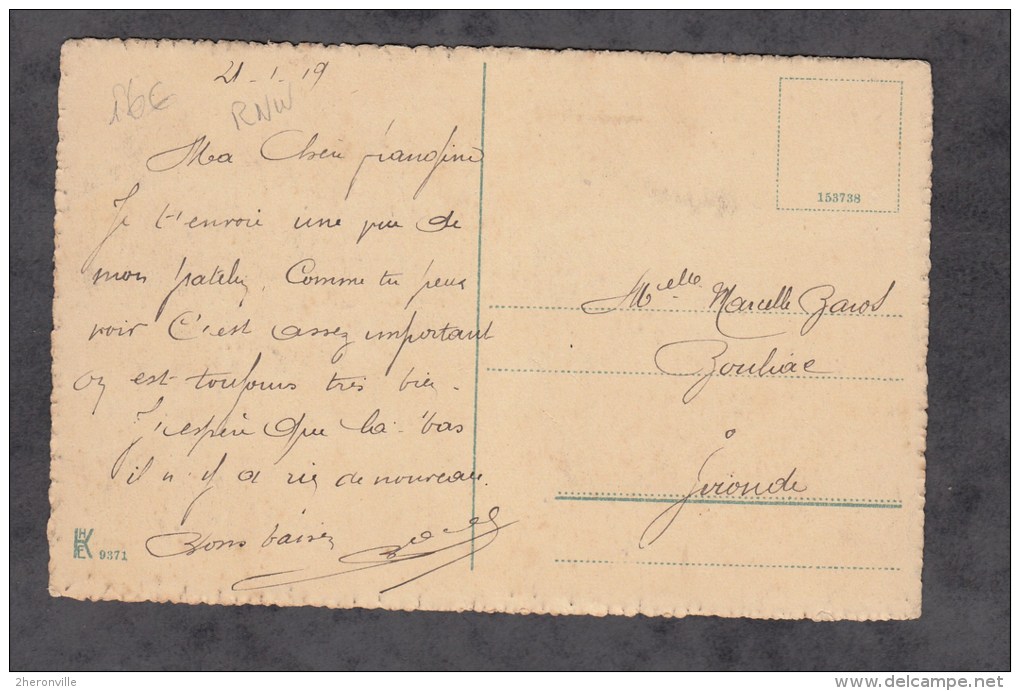 21-1-19
16€
RNW
Ma Chère frangine
Je t'envoie une vue de
mon patelin. Comme tu peux
voir C'est assez important
on est toujours très bien.
J'espère que là-bas
il n'y a rien de nouveau.
Bons baisers
HK
9371
153738
Melle Marcelle
Bouliac
Gironde
2heronville
www.delcampe.net